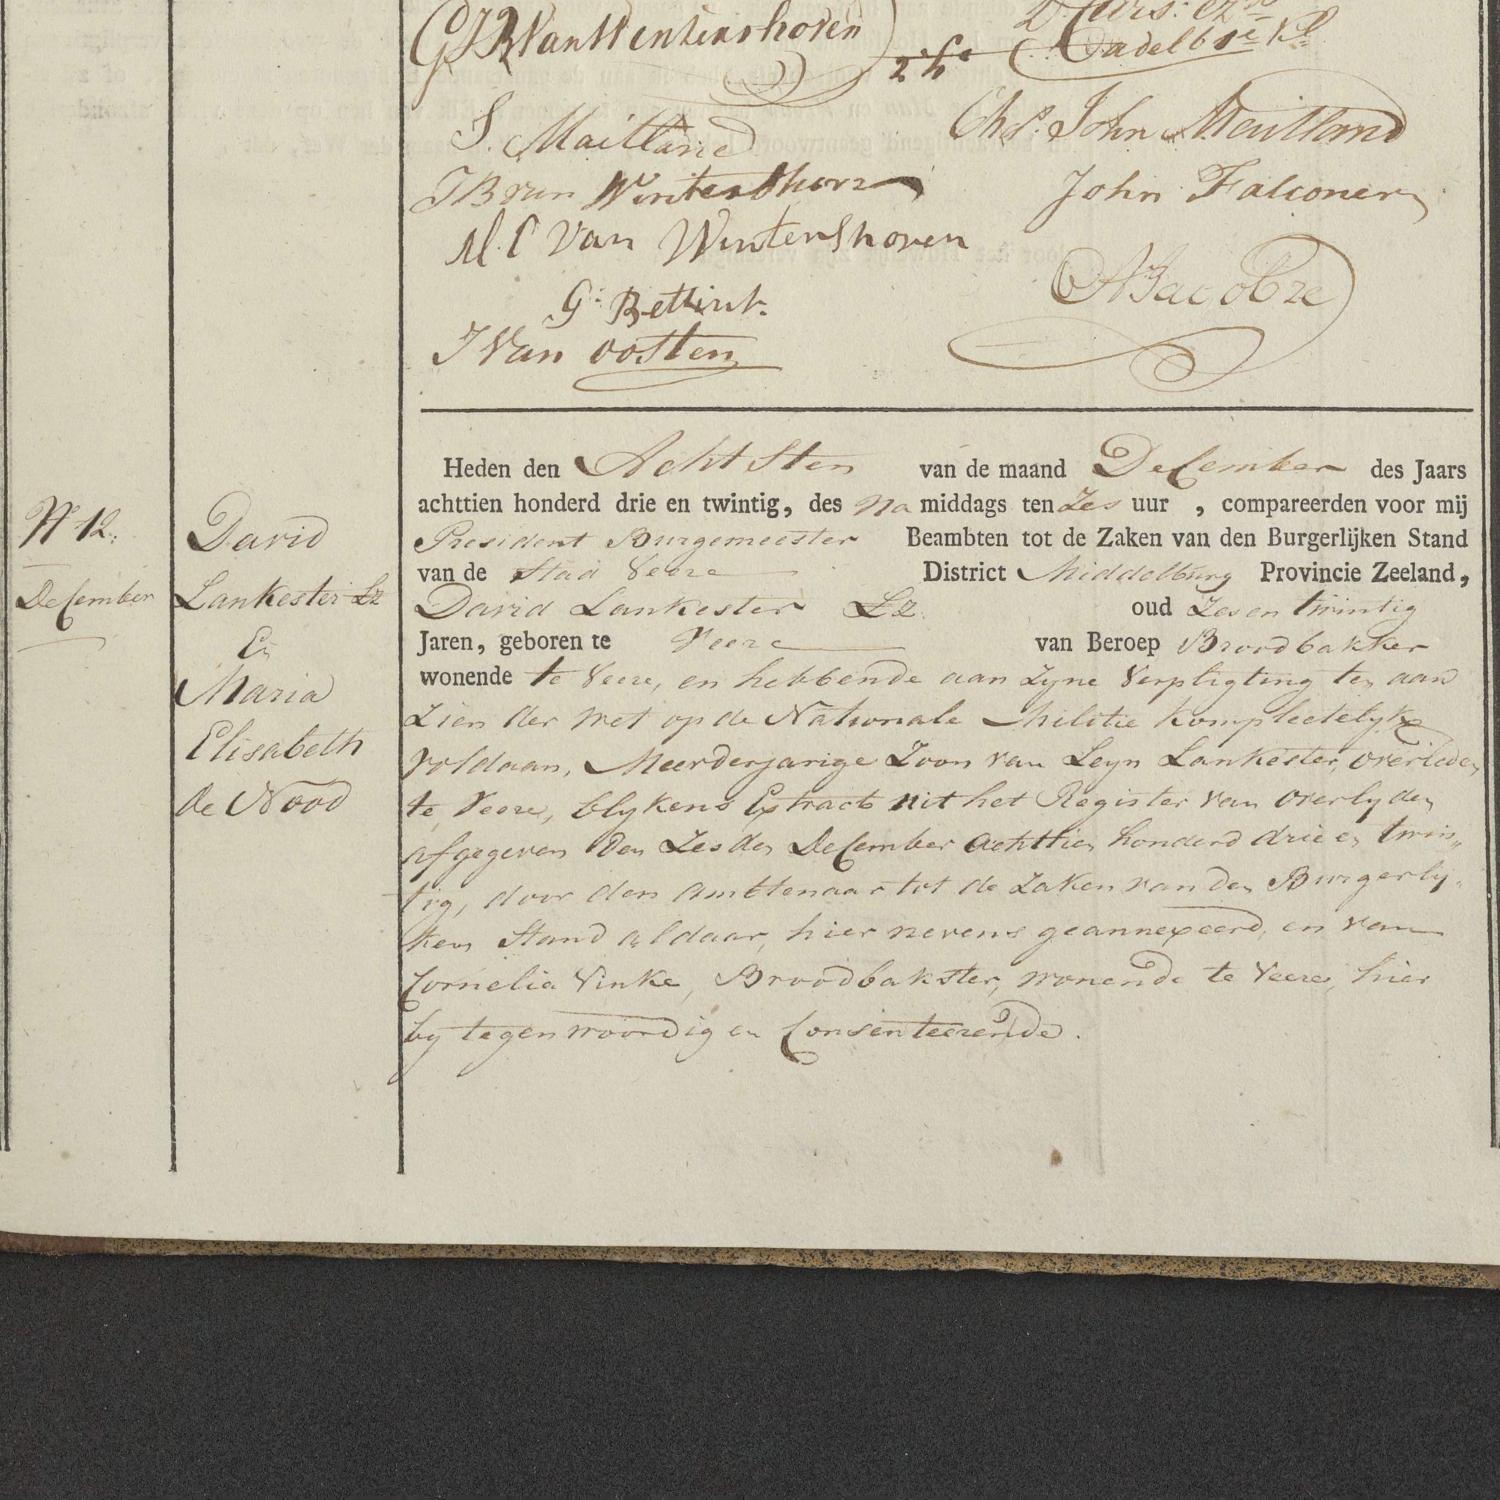 S. Maitland
Chs. John Maitland
John Falconer
M. C Van Wintershoven
AJacobze
G. Bettink
J Van oosten
Heden den Achtsten van de maand December des Jaars
achttien honderd drie en twintig, des na middags ten Zes uur , compareerden voor mij
President Burgemeester Beambten tot de Zaken van den Burgerlijken Stand
van de Stad Veere District Middelburg Provincie Zeeland,
David Lankester Lz. oud Zesentwintig
Jaren, geboren te Veere van Beroep Broodbakker
wonende te Veere, en hebbende aan Zyne Verpligting ten aan
Zien der wet op de Nationale Militie kompleetelyk
voldaan, Meerderjarige Zoon van Leyn Lankester, overleden
te Veere, blykens Extract uit het Register van overlyden
afgegeven den Zesden December achttien honderd drie en twin„
tig, door den ambtenaar tot de Zaken van den Burgerly„
ken Stand aldaar, hier nevens geannexeerd, en van
Cornelia Vinke, Broodbakster, wonende te Veere, hier
by tegenwoordig en Consenteerende.
N 12.
December
David
Lankester Lz
En
Maria
Elisabeth
de Nood